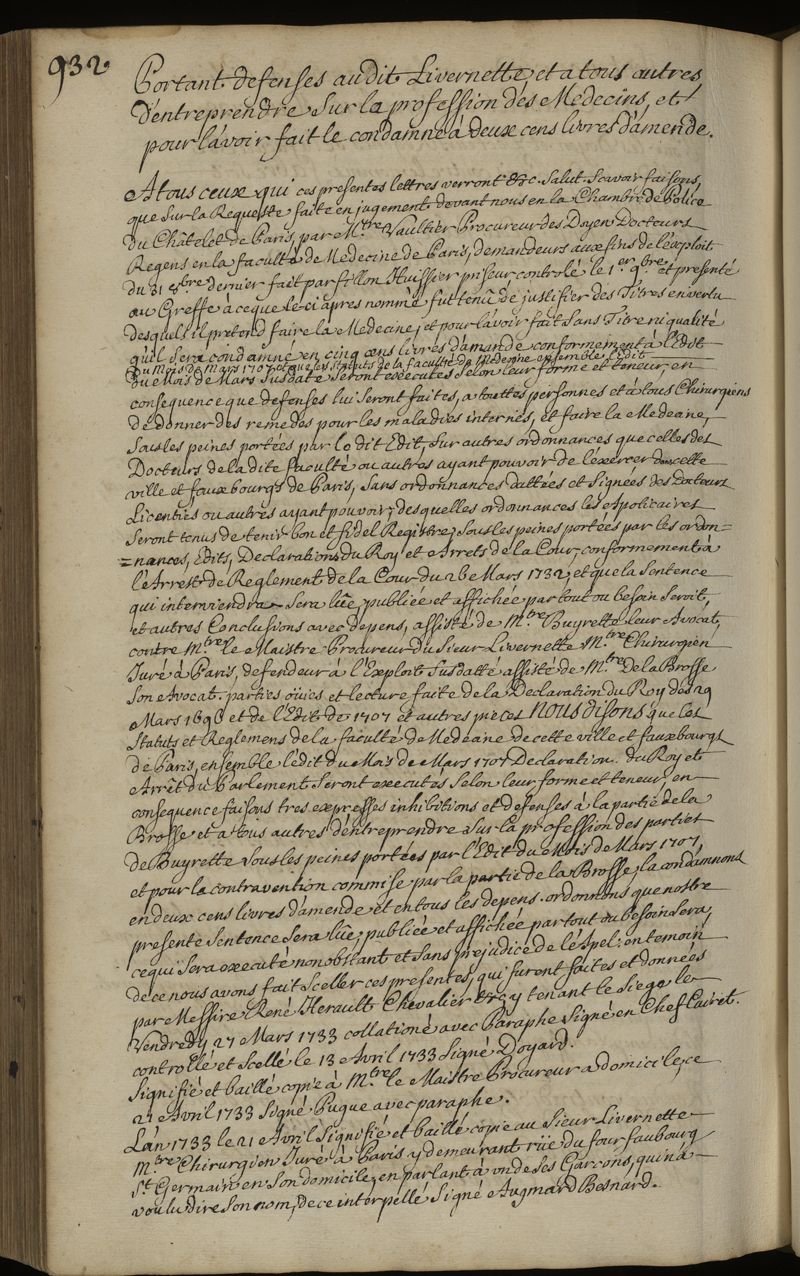 932
Portant defenses audit Livernette, et a tous autres
d'entreprendre sur la profession des Medecins, et
pour l'avoir fait le condamne à deux cens livres d'amende.
A tous ceux qui ces presentes lettres verront &c. Salut. Scavoir faisons,
que sur la Requeste faite en jugement devant nous en la Chambre de Police
du Châtelet de Paris, par M.tre Vaultier Procureur des Doyen Docteurs
Regens en la faculté de Medecine de Paris, demandeurs aux fins de l'exploit
du 31 8bre dernier fait par fillon Huissier priseur controlé le 1.er 9.bre, et presenté
au Greffe à ce que le ci apres nommé fut tenû de justifier des Titres en vertu
desquels il pretend faire la Medecine, et pour l'avoir fait sans Titre ni qualité
qu'il sera condamné en cinq cens livres d'amende conformement à l'Edit
du Mois de Mars 1707 et que les statuts de la faculté de Medecine ensemble l'Edit
du Mois de Mars susdatté seront executés selon leur forme et teneur, en
consequence que defenses lui seront faites, a touttes personnes et à tous Chirurgiens
de donner des remedes pour les maladies internes, et faire la Medecine,
sous les peines portées par le dit Edit, sur autres ordonnances que celles des
Docteurs de la dite faculté ou autres ayant pouvoir de l'exercer dans cette
ville et fauxbourgs de Paris, sans ordonnances dattées et signées des Docteurs
Licentiés ou autres ayant pouvoir, desquelles ordonnances les Apoticaires
seront tenus de tenir bon et fidel Registre, sous les peines portées par les ordon=
=nances, Edits, Declarations du Roy et Arrets de la Cour, conformement à
l'Arrest de Reglement de la Cour du 26 Mars 1732, et que la sentence
qui interviendra sera lüe, publiée et affichée par tout ou besoin seroit,
et autres Conclusions avec depens, assisté de M.tre Buyrette leur Avocat,
contre M.tre le Maistre Procureur du Sieur Livernette M.tre Chirurgien
Juré à Paris, defendeur à l'Exploit susdatté assisté de M.tre De la Brosse
son Avocat, parties oüies et lecture faite de la Declaration du Roy des 29
Mars 1696 et de l'Edit de 1707 et autres pieces NOUS disons que les
statuts et Reglemens de la faculté de Medecine de cette ville et fauxbourgs
de Paris, ensemble l'edit du Mois de Mars 1707 Declaration du Roy et
Arrêt du Parlement seront executés selon leur forme et teneur, en
consequence faisons tres expresses inhibitions et defenses à la partie de la
Brosse et a tous autres d'entreprendre sur la profession des parties
de Buyrette sous les peines portées par l'Edit du Mois de Mars 1707,
et pour la contravention commise par la partie de la Brosse, la condamnons
en deux cens livres d'amende et en tous les depens. ordonnons que nostre
presente Sentence sera lüe, publiée et affichée partout ou besoin sera,
ce qui sera executé nonobstant et sans prejudice de l'Apel. en temoin
de ce nous avons fait sceller ces presentes, qui furent faites et données
par Messire René Herault Chevalier &c. y tenant le siege le
Vendredy 27 Mars 1733 collationé avec Paraphe Signé en Chef Cuiret.
controllé et scellé le 13 Avril 1733 Signé Doyard.
Signifié et baillé copie à M.tre le Maistre Procureur a domicile, ce
21 Avril 1733 Signé Pugue avec paraphe.
L'an 1733 le 21 Avril signifié et baillé copie au Sieur Livernette
M.tre Chirurgien Juré à Paris y demeurant rüe du four faubourg
S.t Germain en son domicile, en parlant à un de ses Garcons, qui n'a
voulu dire son nom, de ce interpellé Signé Augmard Besnard.